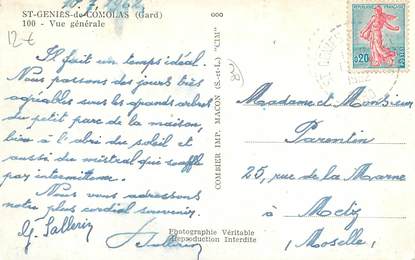 ST-GENIES-de-COMOLAS (Gard)
100 - Vue générale
12€
Il fait un temps idéal.
Nous passons des jours très
agréables sous les grands arbres
du petit parc de la maison,
à l'abri du soleil et
aussi du mistral qui souffle
par intermittence.
Nous vous adressons
notre plus cordial souvenir.
G. Sallerin
COMBIER IMP. MACON (S.-et-L.) "CIM"
Photographie Véritable
Reproduction Interdite
0,20
Madame et Monsieur
Parentin
25, rue de la Marne
à Metz
(Moselle)